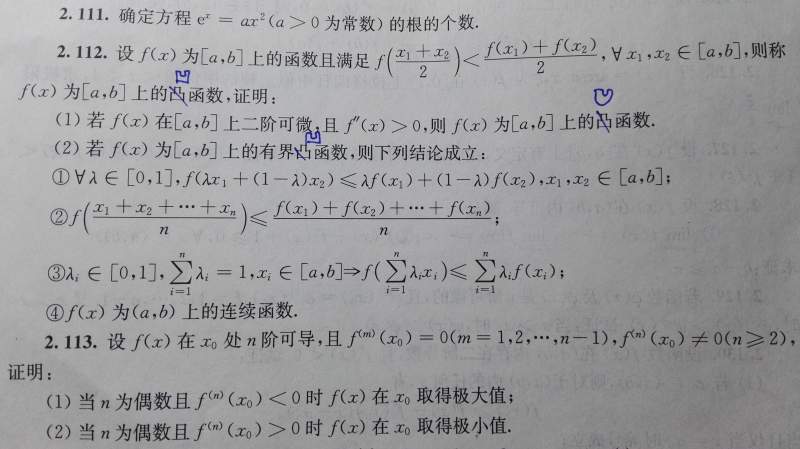 2.111. 确定方程 eˣ = ax²(a>0 为常数)的根的个数.
2.112. 设 f(x)为[a,b]上的函数且满足 f((x₁+x₂)/2)<(f(x₁)+f(x₂))/2, ∀x₁,x₂∈[a,b],则称
f(x)为[a,b]上的凸函数,证明:
凹
(1) 若 f(x)在[a,b]上二阶可微,且 f″(x)>0,则 f(x)为[a,b]上的凸函数.
(2) 若 f(x)为[a,b]上的有界凸函数,则下列结论成立:
凹
①∀λ∈[0,1],f(λx₁+(1-λ)x₂)≤λf(x₁)+(1-λ)f(x₂),x₁,x₂∈[a,b];
②f((x₁+x₂+⋯+xₙ)/n)≤(f(x₁)+f(x₂)+⋯+f(xₙ))/n;
③λᵢ∈[0,1],∑ⁿᵢ₌₁λᵢ=1,xᵢ∈[a,b]⇒f(∑ⁿᵢ₌₁λᵢxᵢ)≤∑ⁿᵢ₌₁λᵢf(xᵢ);
④f(x)为(a,b)上的连续函数.
2.113. 设 f(x)在 x₀ 处 n 阶可导,且 f⁽ᵐ⁾(x₀)=0(m=1,2,⋯,n-1),f⁽ⁿ⁾(x₀)≠0(n≥2),
证明:
(1) 当 n 为偶数且 f⁽ⁿ⁾(x₀)<0 时 f(x)在 x₀ 取得极大值;
(2) 当 n 为偶数且 f⁽ⁿ⁾(x₀)>0 时 f(x)在 x₀ 取得极小值.